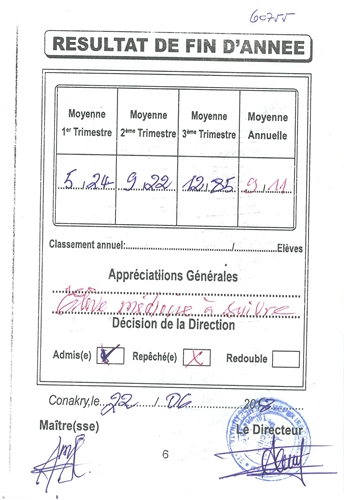 60755
RESULTAT DE FIN D'ANNEE
Moyenne 1er Trimestre
Moyenne 2ème Trimestre
Moyenne 3ème Trimestre
Moyenne Annuelle
5,24 9,22 12,85 9,11
Classement annuel:............/............Elèves
Appréciatiions Générales
Elève médiocre à suivre
Décision de la Direction
Admis(e) Repêché(e) Redouble
Conakry,le 22 / 06 2018
Maître(sse) Le Directeur
6